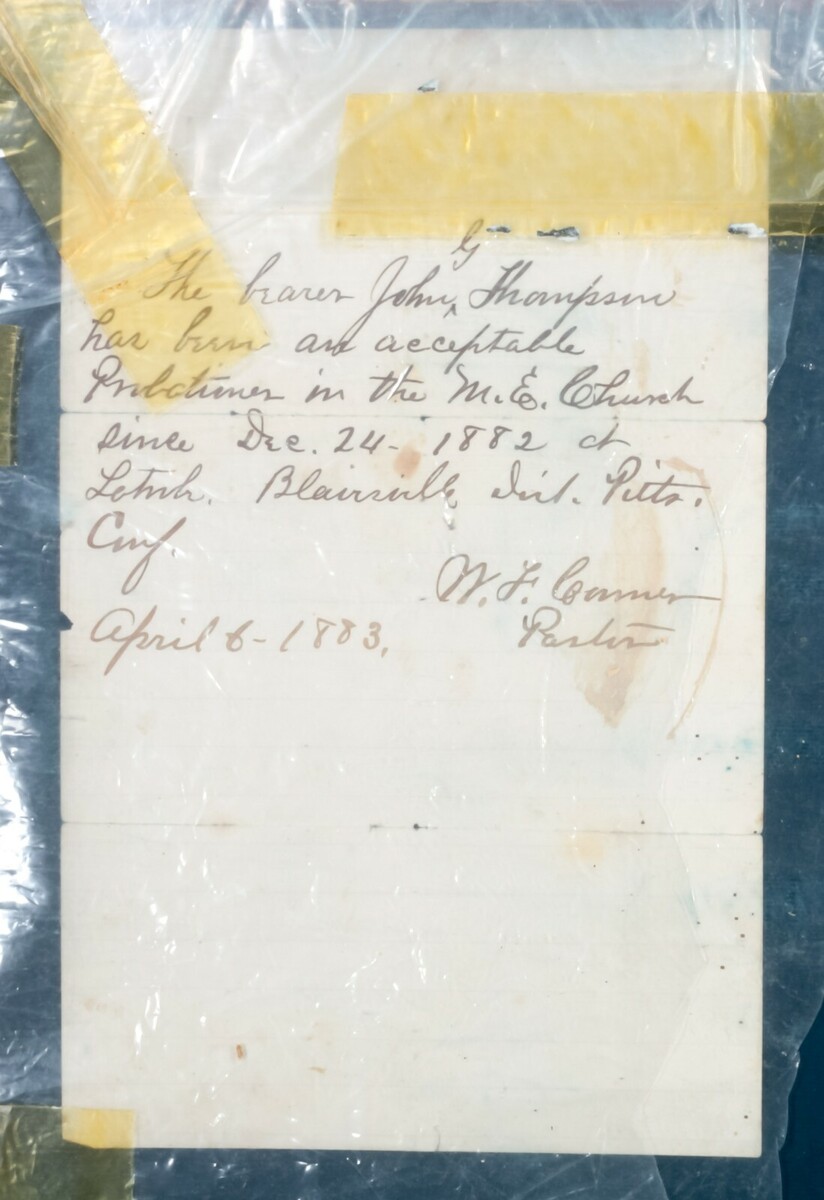 The bearer John G Thompson
has been an acceptable
Probationer in the M.E. Church
since Dec. 24- 1882 at
Blairsville Dist. Pitts.
Conf.
W. F. Conner
April 6-1883. Pastor